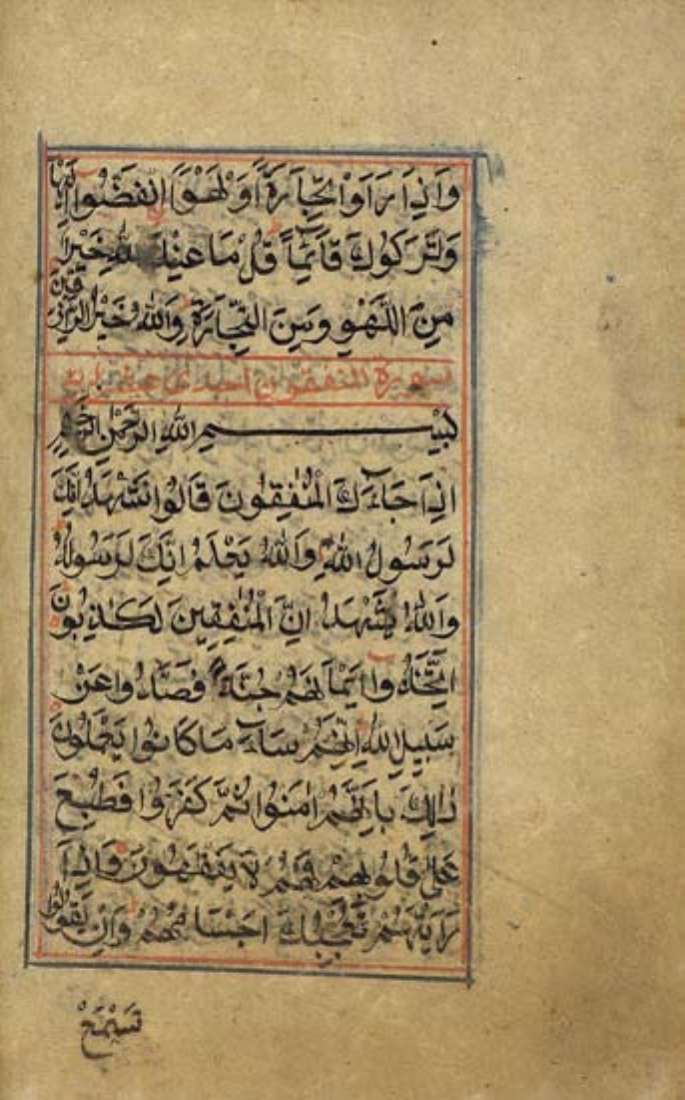 وَاِذَا رَاَوْا تِجَارَةً اَوْ لَهْوًا انْفَضُّوا اِلَيْهَا
وَتَرَكُوكَ قَآئِمًا قُلْ مَا عِنْدَ اللّٰهِ خَيْرٌ
مِنَ اللَّهْوِ وَمِنَ التِّجَارَةِ وَاللّٰهُ خَيْرُ الرَّازِقِينَ
سورة المنفقون احدى عشر
بِسْمِ اللّٰهِ الرَّحْمٰنِ الرَّحِيمِ
اِذَا جَآءَكَ الْمُنٰفِقُونَ قَالُوا نَشْهَدُ اِنَّكَ
لَرَسُولُ اللّٰهِ وَاللّٰهُ يَعْلَمُ اِنَّكَ لَرَسُولُهُ
وَاللّٰهُ يَشْهَدُ اِنَّ الْمُنٰفِقِينَ لَكَاذِبُونَ
اِتَّخَذُوا اَيْمَانَهُمْ جُنَّةً فَصَدُّوا عَنْ
سَبِيلِ اللّٰهِ اِنَّهُمْ سَآءَ مَا كَانُوا يَعْمَلُونَ
ذٰلِكَ بِاَنَّهُمْ اٰمَنُوا ثُمَّ كَفَرُوا فَطُبِعَ
عَلٰى قُلُوبِهِمْ فَهُمْ لَا يَفْقَهُونَ وَاِذَا
رَاَيْتَهُمْ تُعْجِبُكَ اَجْسَامُهُمْ وَاِنْ يَقُولُوا
تَسْمَعْ